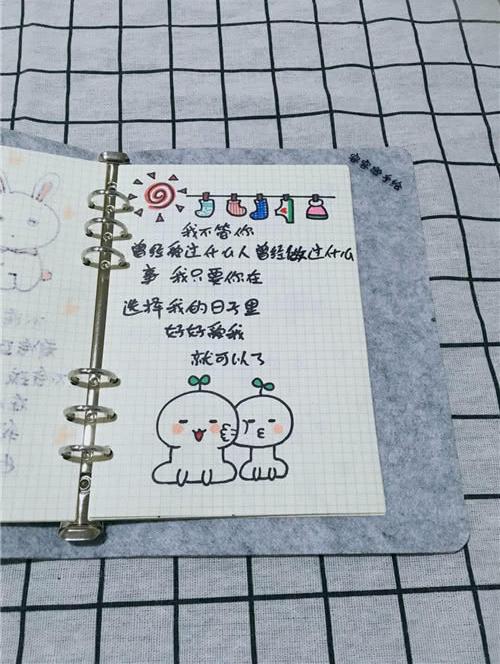 我不管你
曾经爱过什么人 曾经做过什么
事 我只要你在
选择我的日子里
好好爱我
就可以了